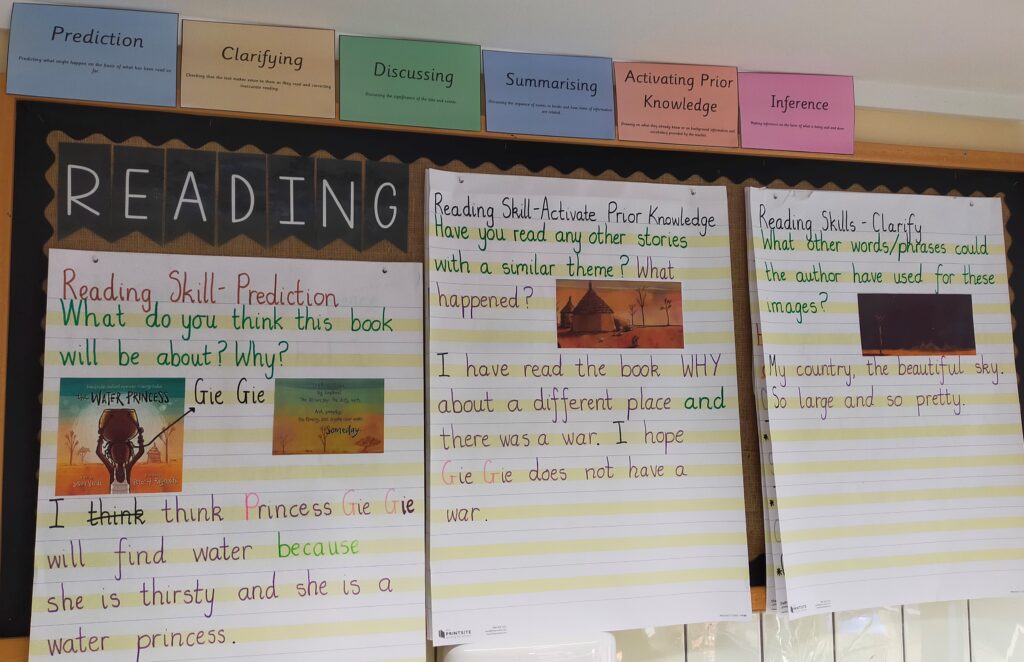 Prediction
Predicting what might happen on the basis of what has been read so
far.
Clarifying
Checking that the text makes sense to them as they read and correcting
inaccurate reading.
Discussing
Discussing the significance of the title and events.
Summarising
Discussing the sequence of events in books and how items of information
are related.
Activating Prior
Knowledge
Drawing on what they already know or on background information and
vocabulary provided by the teacher.
Inference
Making inferences on the basis of what is being said and done
READING
Reading Skill-Prediction
What do you think this book
will be about? Why?
the WATER PRINCESS
Gie Gie
Someday
I think think Princess Gie Gie
will find water because
she is thirsty and she is a
water princess.
Reading Skill-Activate Prior Knowledge
Have you read any other stories
with a similar theme? What
happened?
I have read the book WHY
about a different place and
there was a war. I hope
Gie Gie does not have a
war.
PRINTSITE
Reading Skills - Clarify
What other words/phrases could
the author have used for these
images?
My country, the beautiful sky.
So large and so pretty.